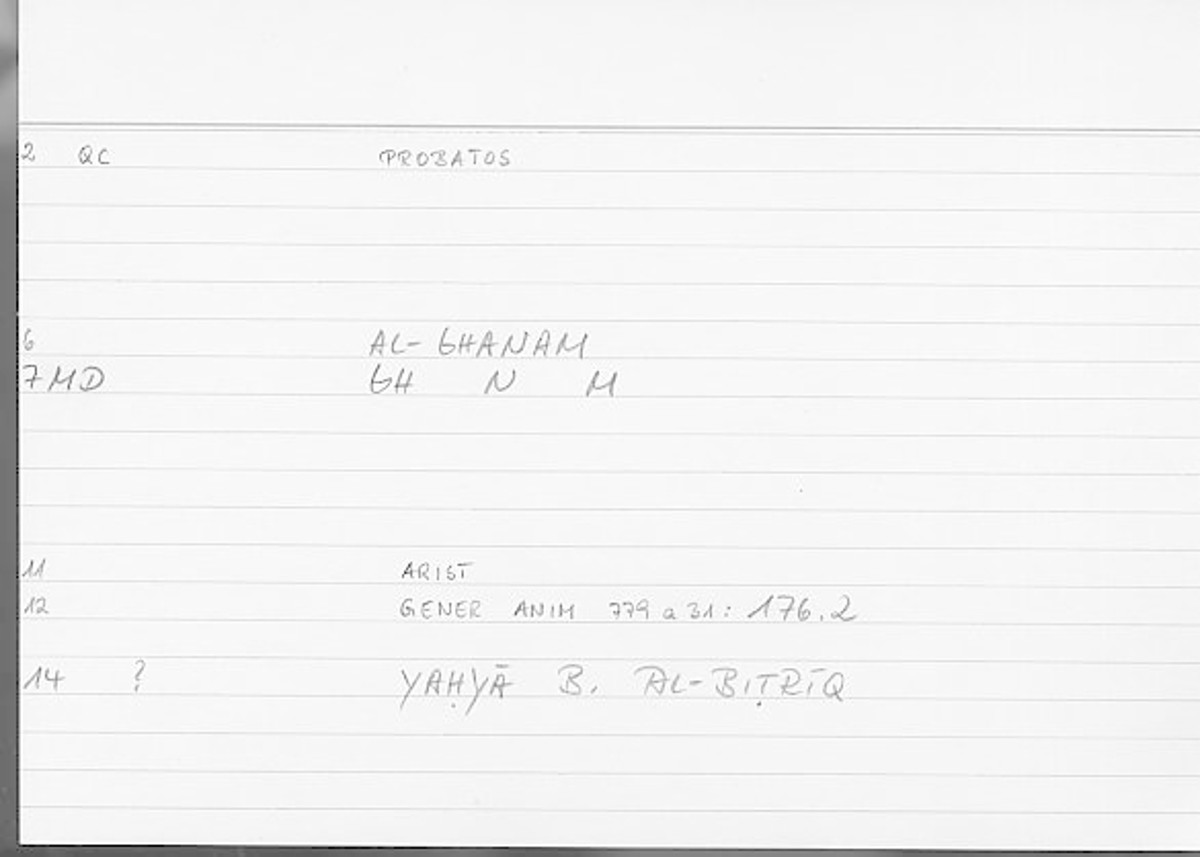 2 QC PROBATOS
6 AL-GHANAM
7 MD GH N M
11 ARIST
12 GENER ANIM 779 a 31: 176.2
14 ? YAḤYĀ B. AL-BIṬRĪQ